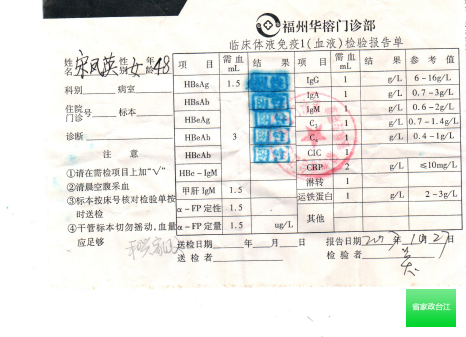 福州华榕门诊部
临床体液免疫1(血液)检验报告单
姓名 宋凤英 性别 女 年龄 48
科别 病室
住院门诊号 标本
诊断
注 意
①请在需检项目上加"√"
②清晨空腹采血
③标本按床号核对检验单按时送检
④干管标本切勿摇动,血量应足够
项 目 需血mL 结 果 项 目 需血mL 结 果 参 考 值
HBsAg 1.5 阴性 IgG 1 g/L 6-16g/L
HBsAb 阴性 IgA 1 g/L 0.7-3g/L
HBeAg 阴性 IgM 1 g/L 0.6-2g/L
HBeAb 3 阴性 C 1 g/L 0.7-1.4g/L
HBeAb 阴性 C 1 g/L 0.4-1g/L
HBe-IgM CIC 1
甲肝 IgM 1.5 CRP 2 g/L ≤10mg/L
α-FP 定性 1.5 滑转 1
α-FP 定量 1.5 ug/L 运铁蛋白 1 g/L 2-3g/L
其他
送检日期 年 月 日 报告日期 年 10 27
送检者 检验者
省家政台江